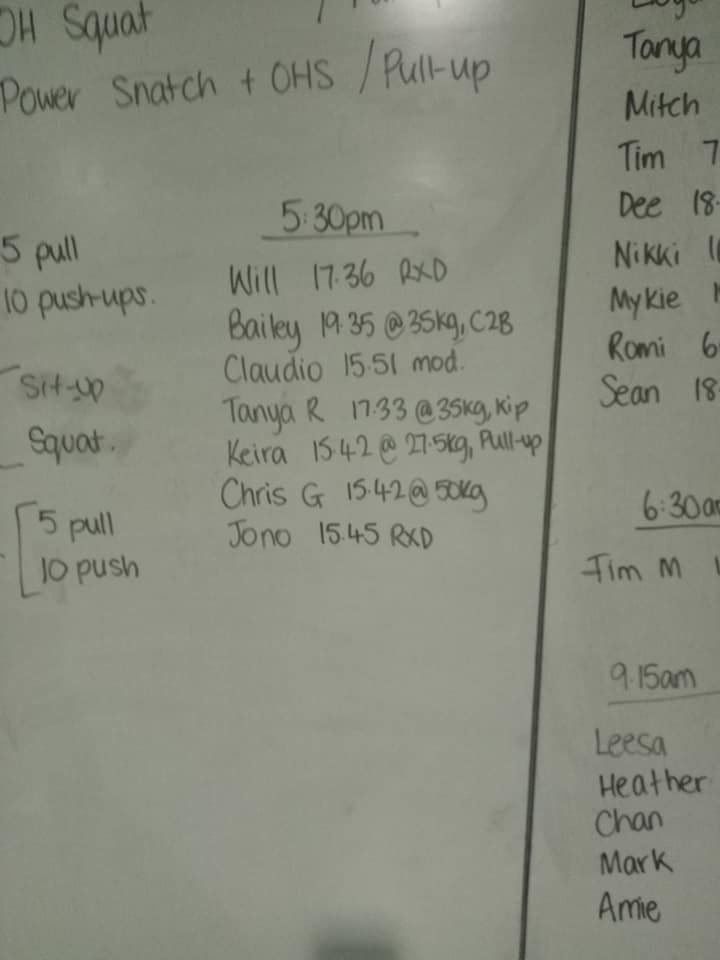 OH Squat
Power Snatch + OHS / Pull-up
5 pull
10 push-ups.
Sit-up
Squat.
5 pull
10 push
5:30pm
Will 17.36 RXD
Bailey 19.35 @35kg, C2B
Claudio 15.51 mod.
Tanya R 17.33 @35kg, Kip
Keira 15.42 @ 27.5kg, Pull-up
Chris G 15.42 @ 50kg
Jono 15.45 RXD
Tanya
Mitch
Tim 7
Dee 18.
Nikki
Mykie
Romi 6
Sean 18
6:30a
Jim M
9.15am
Leesa
Heather
Chan
Mark
Amie